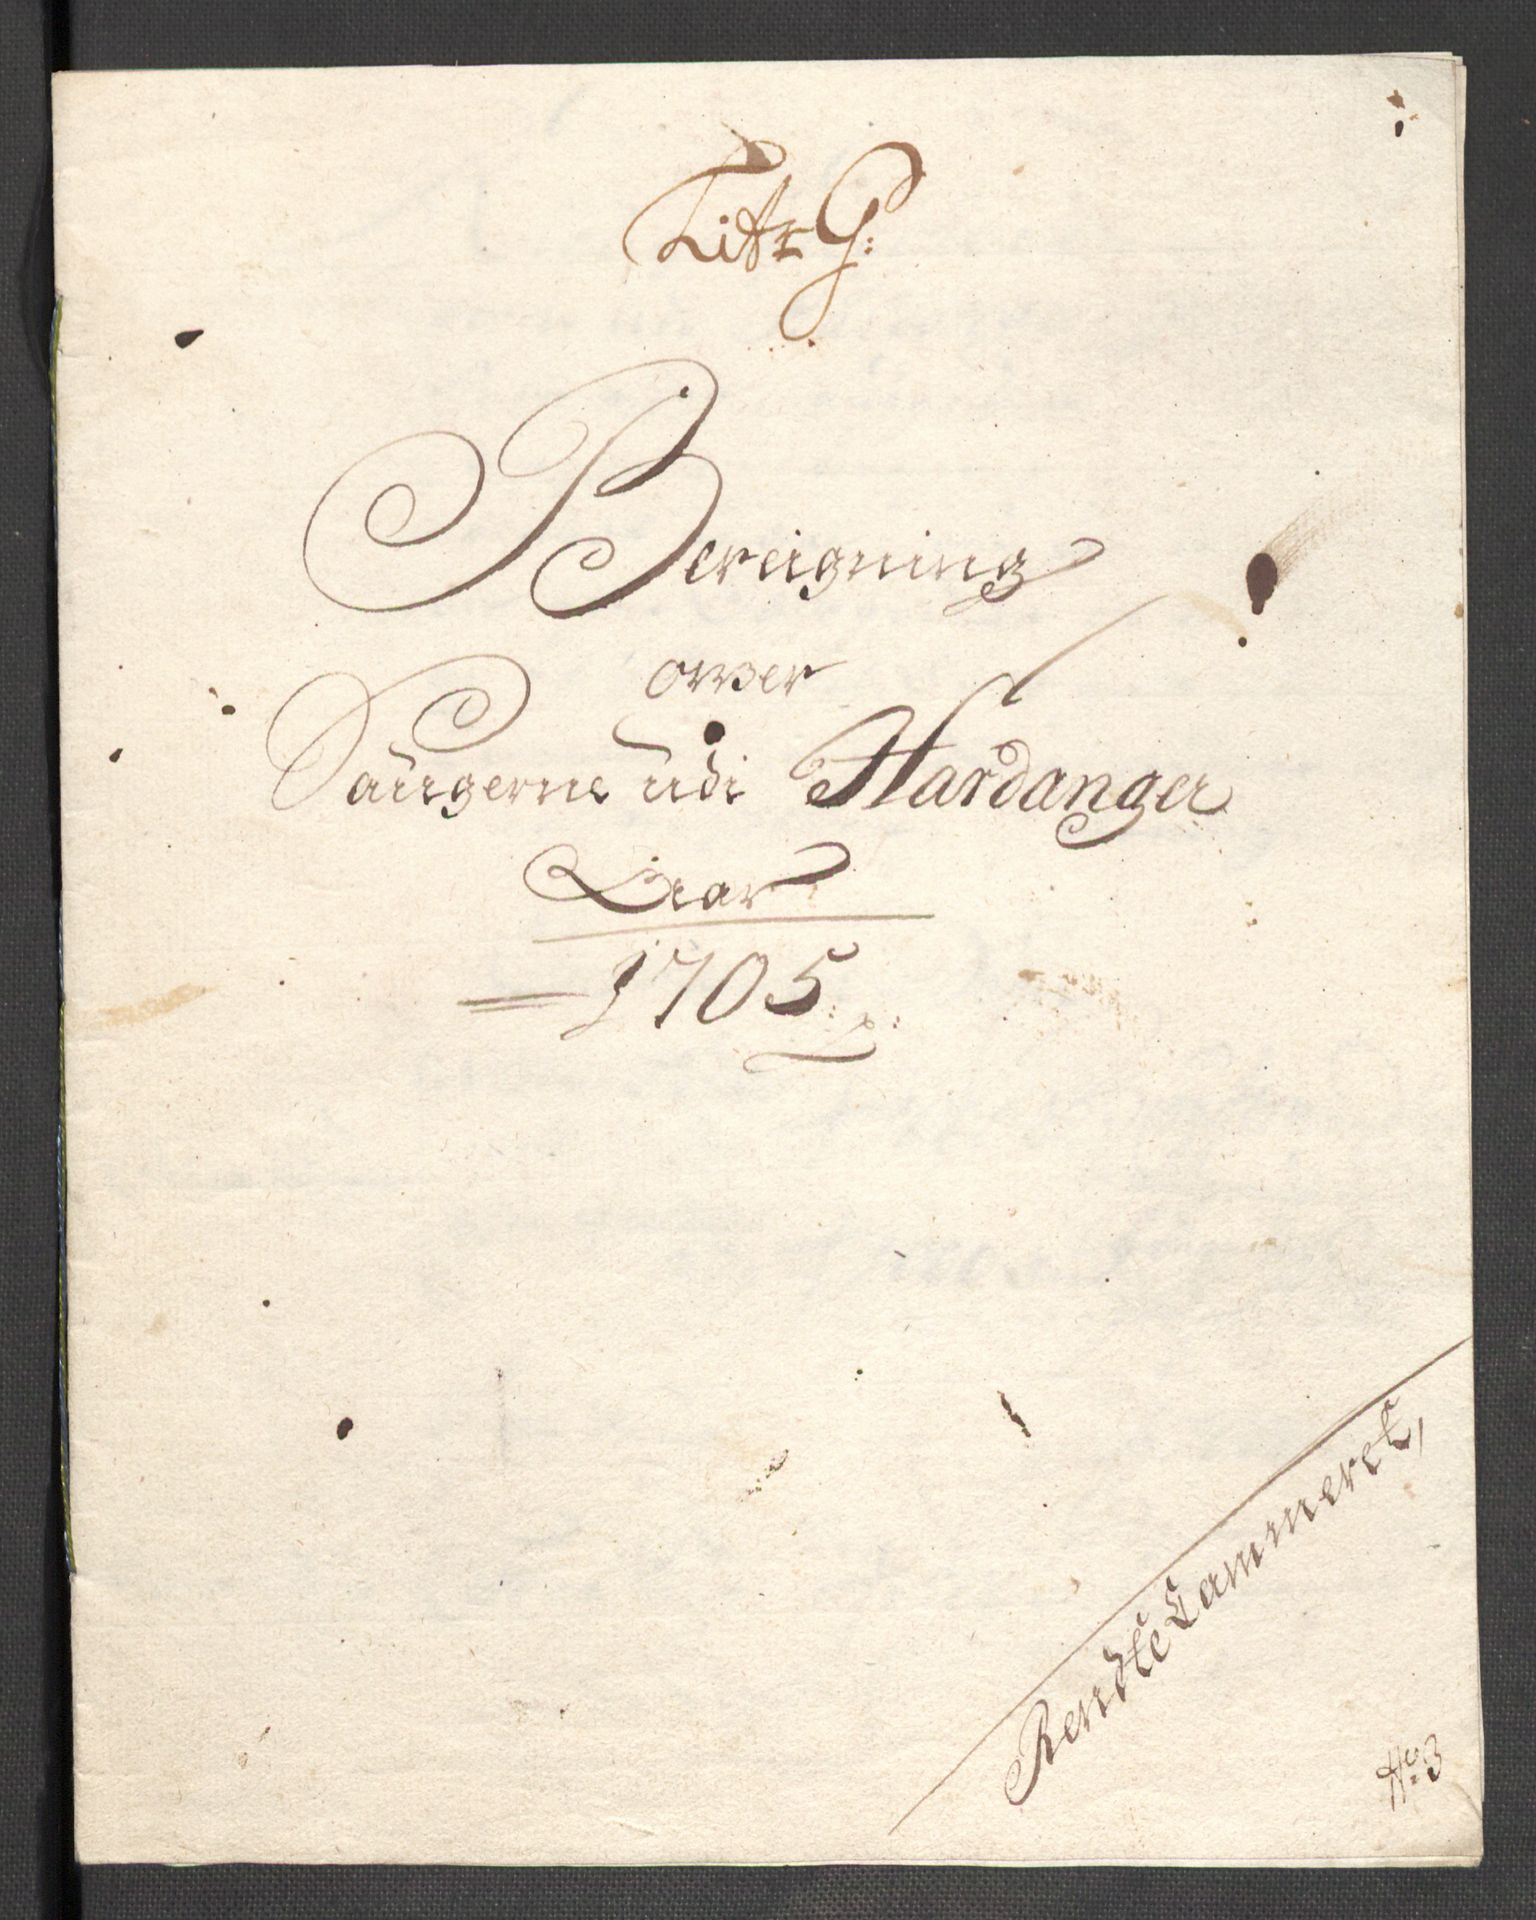 Litr G:
Bereigning
over
Saugerne udi Hardanger
1705
Rendte Cammeret,
No: 3